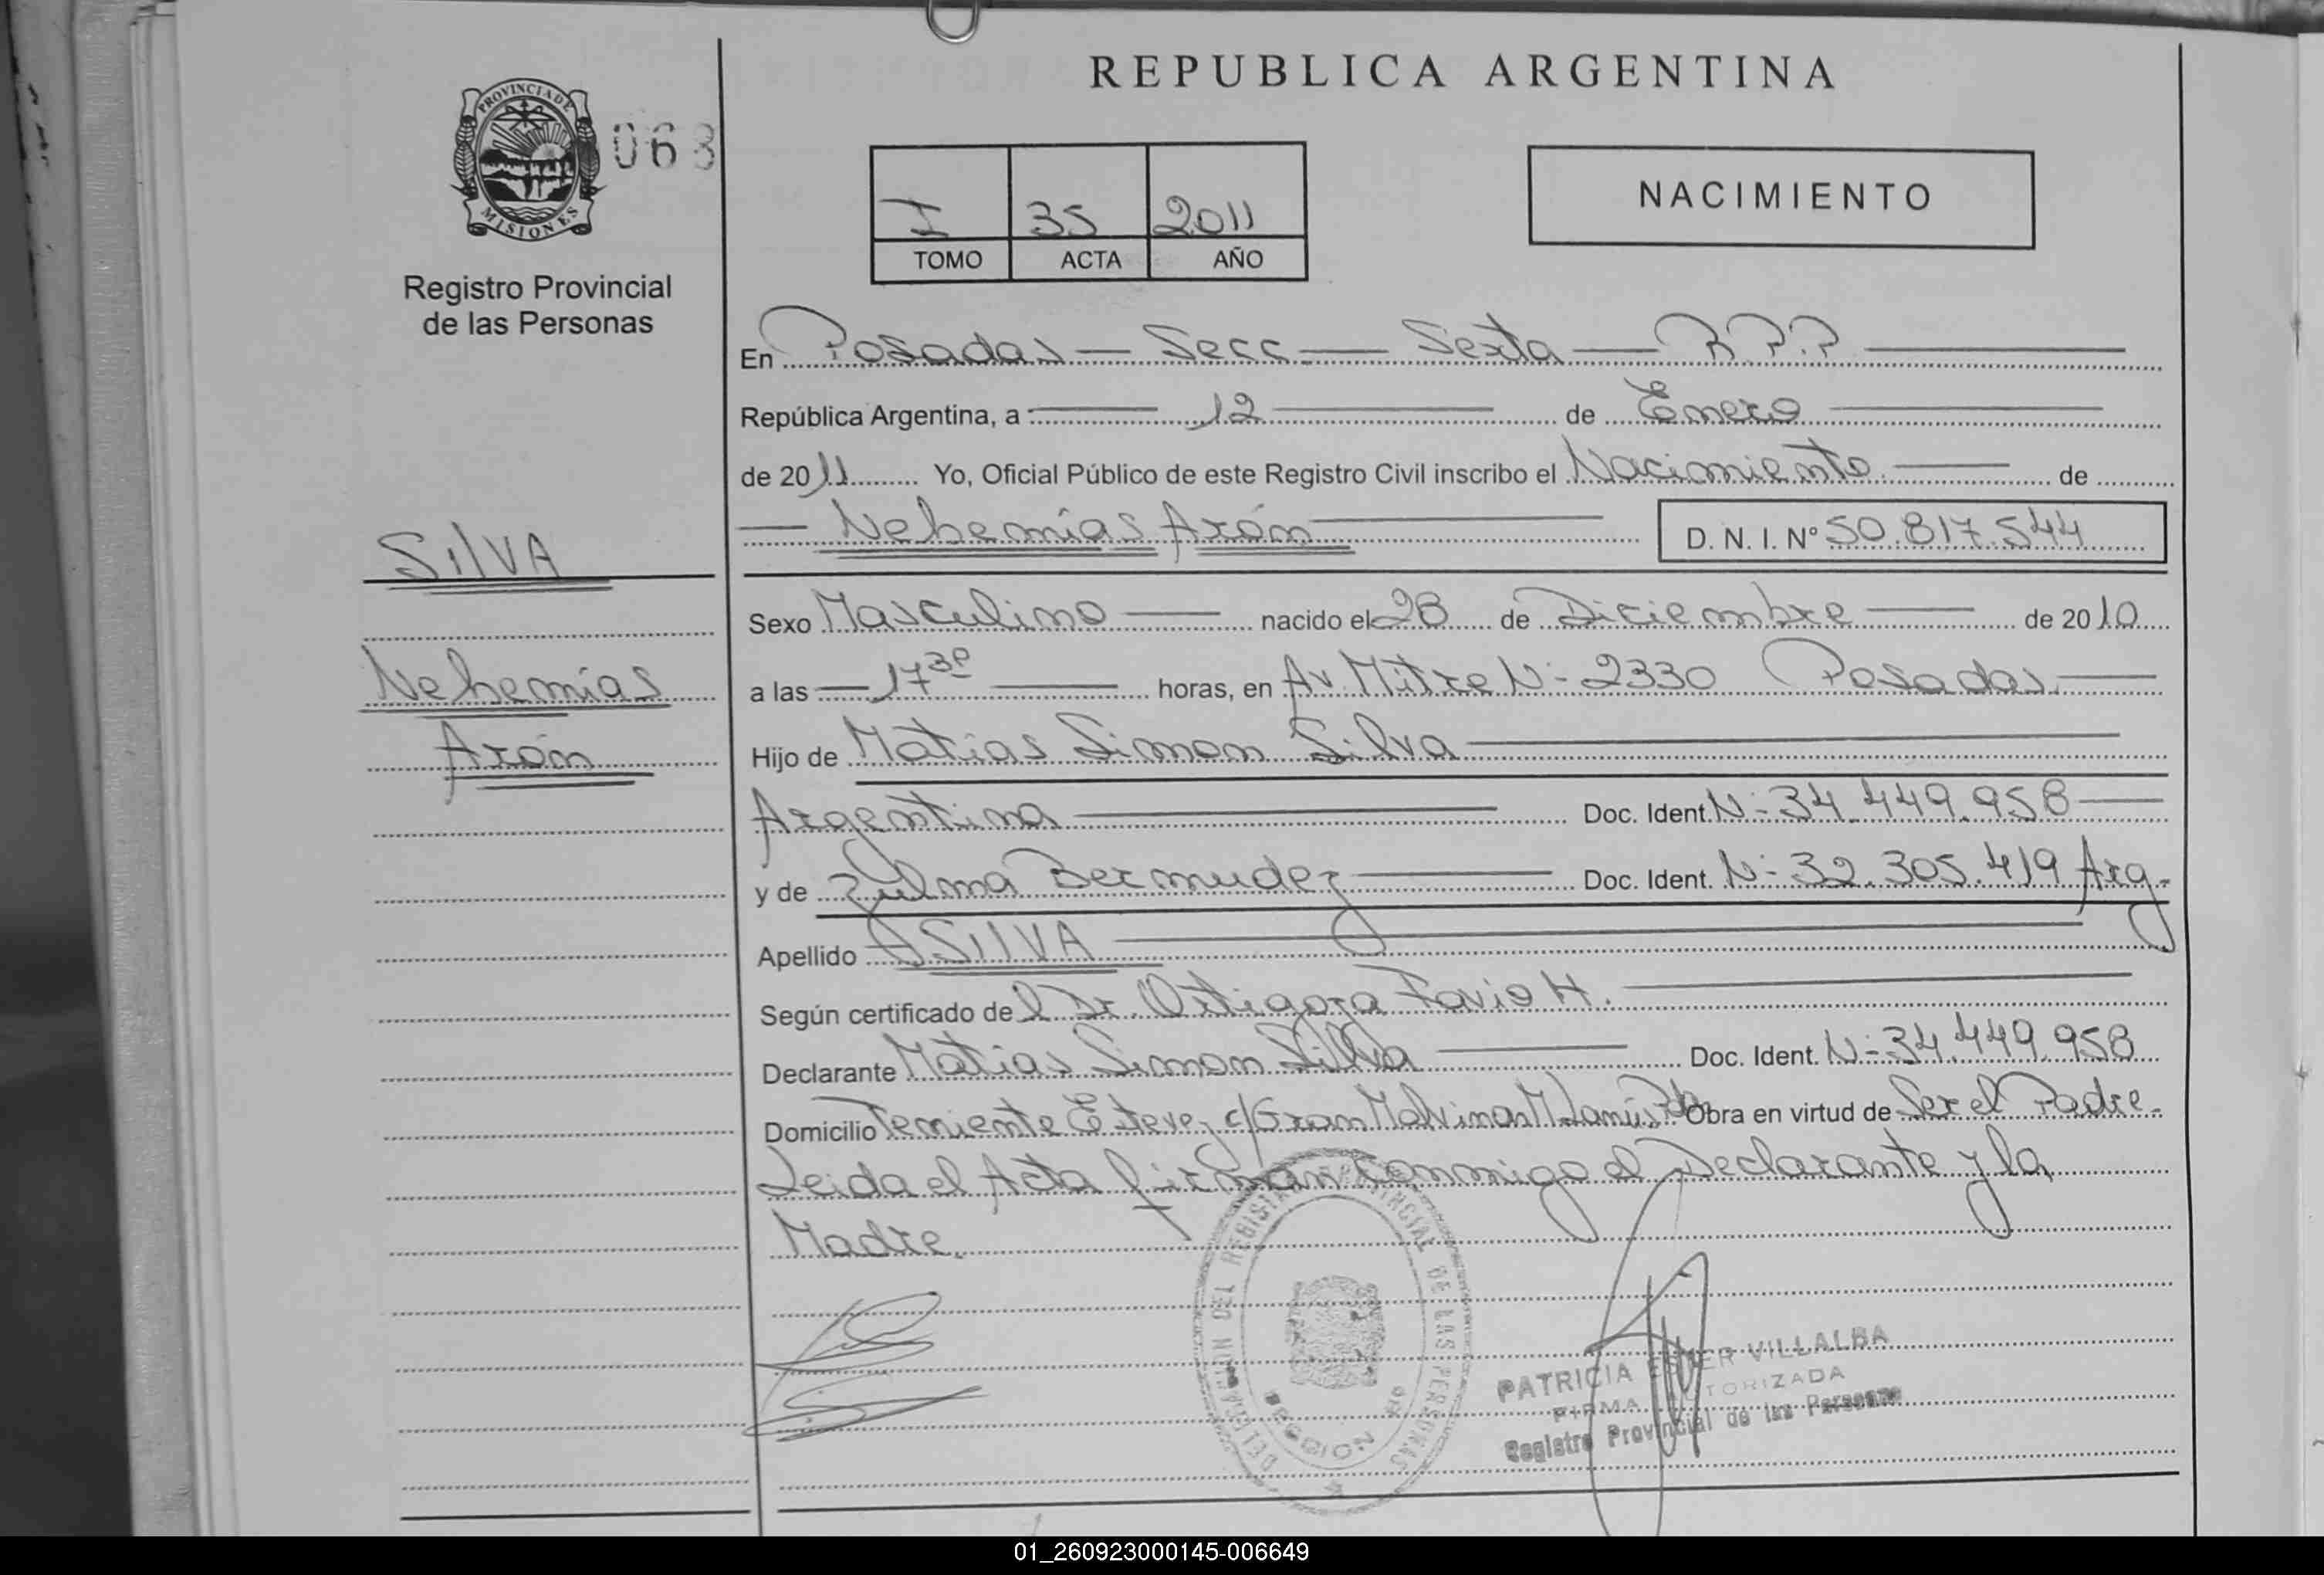 REPUBLICA ARGENTINA
PROVINCIA DE
MISIONES
063
Registro Provincial
de las Personas
I 35 2011
TOMO ACTA AÑO
NACIMIENTO
En Posadas — Secc — Sexta — R.P.P.
República Argentina, a 12 de Enero
de 2011 Yo, Oficial Público de este Registro Civil inscribo el Nacimiento. de
Nehemías Arón D. N. I. Nº 50.817.544
SILVA
Nehemías
Arón
Sexo Masculino nacido el 28 de Diciembre de 2010
a las 17 30 horas, en Av. Mitre N- 2330 Posadas.
Hijo de Matias Simon Silva
Argentina Doc. Ident. N- 34.449.958
y de Zulma Bermudez Doc. Ident. N- 32.305.419 Arg.
Apellido SILVA
Según certificado del Dr. Ortigoza Favio H.
Declarante Matias Simon Silva Doc. Ident. N- 34.449.958
Domicilio Teniente Estevez c/Gran Malvinas M Lanús Pdas Obra en virtud de Ser el Padre.
Leida el Acta firman conmigo el Declarante y la
Madre.
DELEGACION DEL REGISTRO PROVINCIAL DE LAS PERSONAS
SECCION
PATRICIA ESTER VILLALBA
FIRMA AUTORIZADA
Registro Provincial de las Personas
01_260923000145-006649